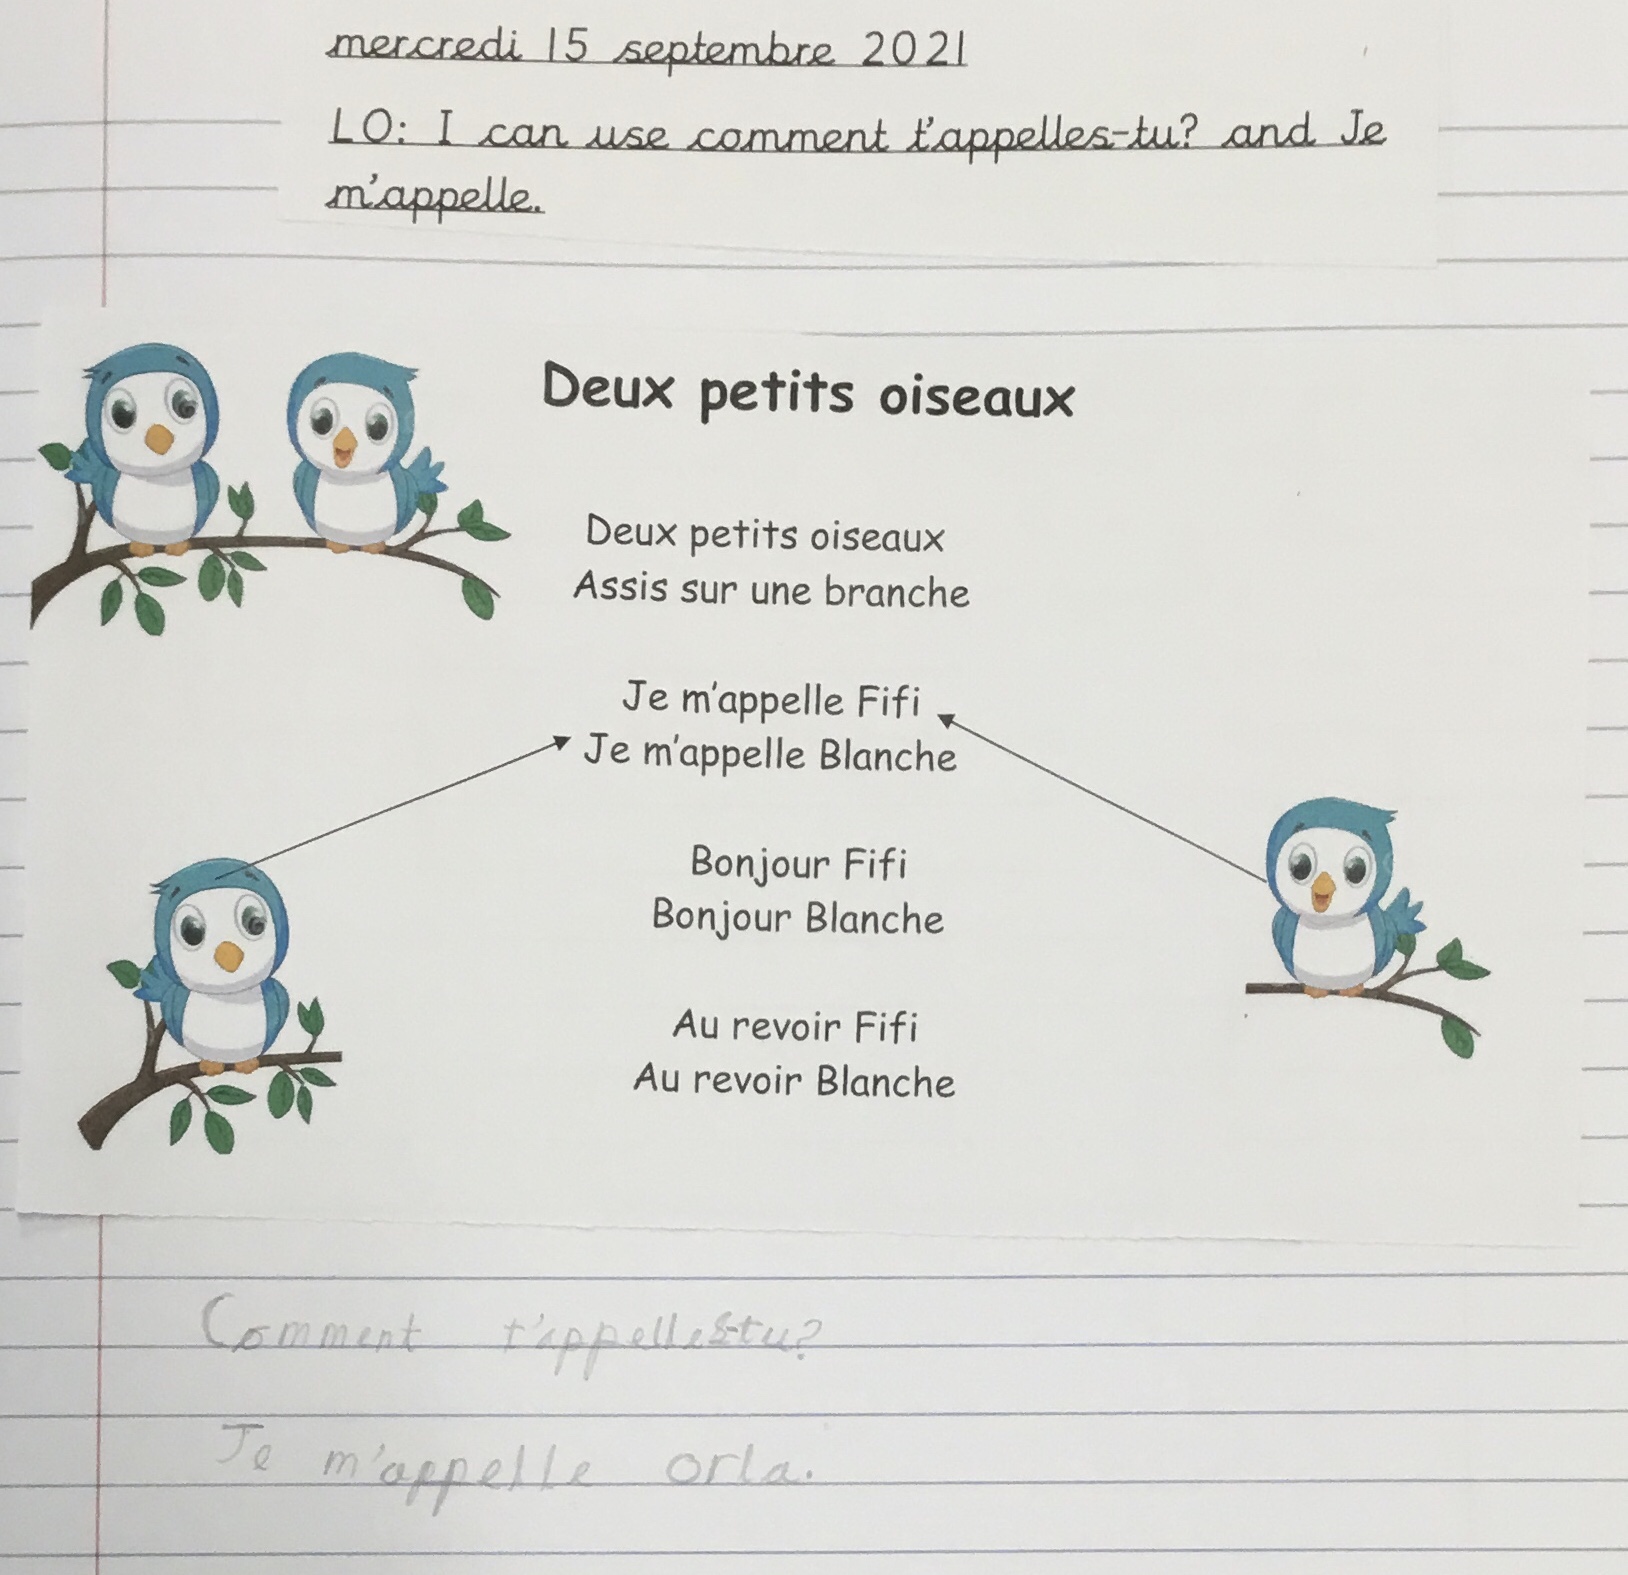 mercredi 15 septembre 2021
LO: I can use comment t'appelles-tu? and Je
m'appelle.
Deux petits oiseaux
Deux petits oiseaux
Assis sur une branche
Je m'appelle Fifi
Je m'appelle Blanche
Bonjour Fifi
Bonjour Blanche
Au revoir Fifi
Au revoir Blanche
Comment t'appelles-tu?
Je m'appelle orla.